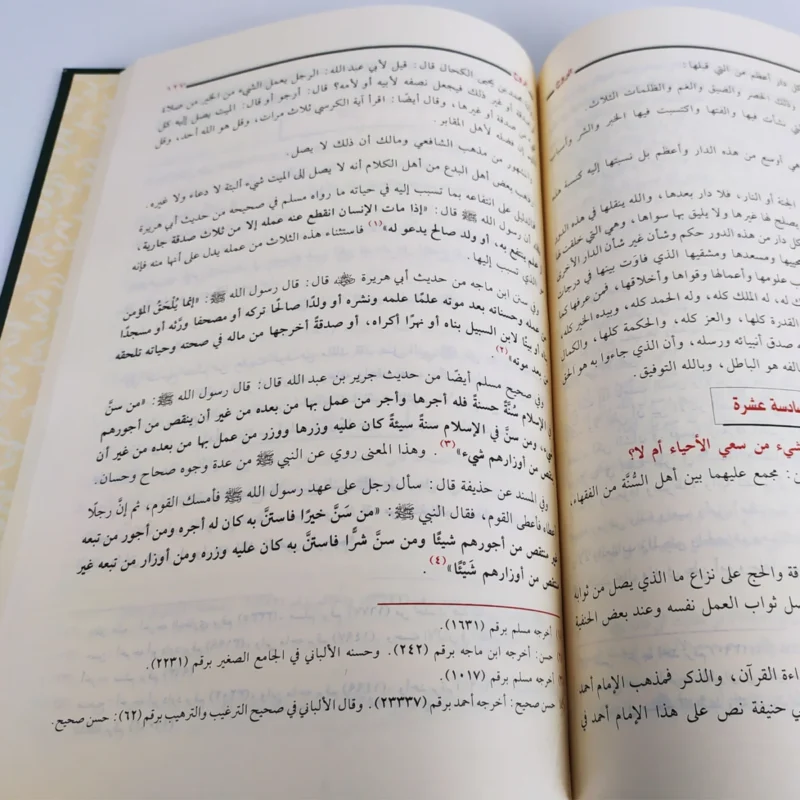 كل دار أعظم من التي قبلها:
وذلك الحصر والضيق والغم والظلمات الثلاث.
نشأت فيها وألفتها واكتسبت فيها الخير والشر وأسباب
هي أوسع من هذه الدار وأعظم بل نسبتها إليه كنسبة هذه
الجنة أو النار، فلا دار بعدها، والله ينقلها في هذه الدور
يصلح لها غيرها ولا يليق بها سواها، وهي التي خلقت
كل دار من هذه الدور حكم وشأن غير شأن الدار الأخرى
ومسعدها ومشقيها الذي فاوت بينها في درجات
علومها وأعمالها وقواها وأخلاقها، فمن عرفها كما
له، له الملك كله، وله الحمد كله، وبيده الخير كله
القدرة كلها، والعز كله، والحكمة كلها، والكمال
صدق أنبيائه ورسله، وأن الذي جاءوا به هو الحق
هو الباطل، وبالله التوفيق.
السادسة عشرة
شيء من سعي الأحياء أم لا؟
مجمع عليهما بين أهل السُّنَّة من الفقهاء
والحج على نزاع ما الذي يصل من ثوابه
ثواب العمل نفسه وعند بعض الحنفية
القرآن، والذكر فمذهب الإمام أحمد
حنيفة نص على هذا الإمام أحمد في
الروح
بن يحيى الكحال قال: قيل لأبي عبد الله: الرجل يعمل الشيء من الخير من صلاة
أو صدقة أو غير ذلك فيجعل نصفه لأبيه أو لأمه؟ قال: أرجو أو قال: الميت يصل إليه كل
من صدقة أو غيرها، وقال أيضًا: اقرأ آية الكرسي ثلاث مرات، وقل هو الله أحد، وقل
إن فضله لأهل المقابر.
من مذهب الشافعي ومالك أن ذلك لا يصل.
بعض أهل البدع من أهل الكلام أنه لا يصل إلى الميت شيء ألبتة لا دعاء ولا غيره.
على انتفاعه بما تسبب إليه في حياته ما رواه مسلم في صحيحه من حديث أبي هريرة
أن رسول الله ﷺ قال: «إذا مات الإنسان انقطع عنه عمله إلا من ثلاث صدقة جارية،
ينتفع به، أو ولد صالح يدعو له»(١) فاستثناء هذه الثلاث من عمله يدل على أنها منه فإنه
الذي تسبب إليها.
وفي سنن ابن ماجه من حديث أبي هريرة قال: قال رسول الله ﷺ: «إنما يُلْحَقُ المؤمن
من عمله وحسناته بعد موته علمًا علمه ونشره أو ولدًا صالحًا تركه أو مصحفا ورَّثه أو مسجدًا
أو بيتًا لابن السبيل بناه أو نهرًا أكراه، أو صدقةً أخرجها من ماله في صحته وحياته تلحقه
من بعد موته»(٢)
وفي صحيح مسلم أيضًا من حديث جرير بن عبد الله قال: قال رسول الله ﷺ: «من سنَّ
في الإسلام سُنَّةً حسنةً فله أجرها وأجر من عمل بها من بعده من غير أن ينقص من أجورهم
شيء، ومن سنَّ في الإسلام سنةً سيئةً كان عليه وزرها ووزر من عمل بها من بعده من غير أن
ينقص من أوزارهم شيء»(٣). وهذا المعنى روي عن النبي ﷺ من عدة وجوه صحاح وحسان.
وفي المسند عن حذيفة قال: سأل رجل على عهد رسول الله ﷺ فأمسك القوم، ثم إنَّ رجلًا
أعطاه فأعطى القوم، فقال النبي ﷺ: «من سَنَّ خيرًا فاستنَّ به كان له أجره ومن أجور من تبعه
غير منتقص من أجورهم شيئًا ومن سنَّ شرًّا فاستنَّ به كان عليه وزره ومن أوزار من تبعه غير
منتقص من أوزارهم شَيْئًا»(٤).
أخرجه مسلم برقم (١٦٣١).
حسن: أخرجه ابن ماجه برقم (٢٤٢). وحسنه الألباني في الجامع الصغير برقم (٢٢٣١).
أخرجه مسلم برقم (١٠١٧).
حسن صحيح: أخرجه أحمد برقم (٢٣٣٣٧). وقال الألباني في صحيح الترغيب والترهيب برقم (٦٢): حسن صحيح.